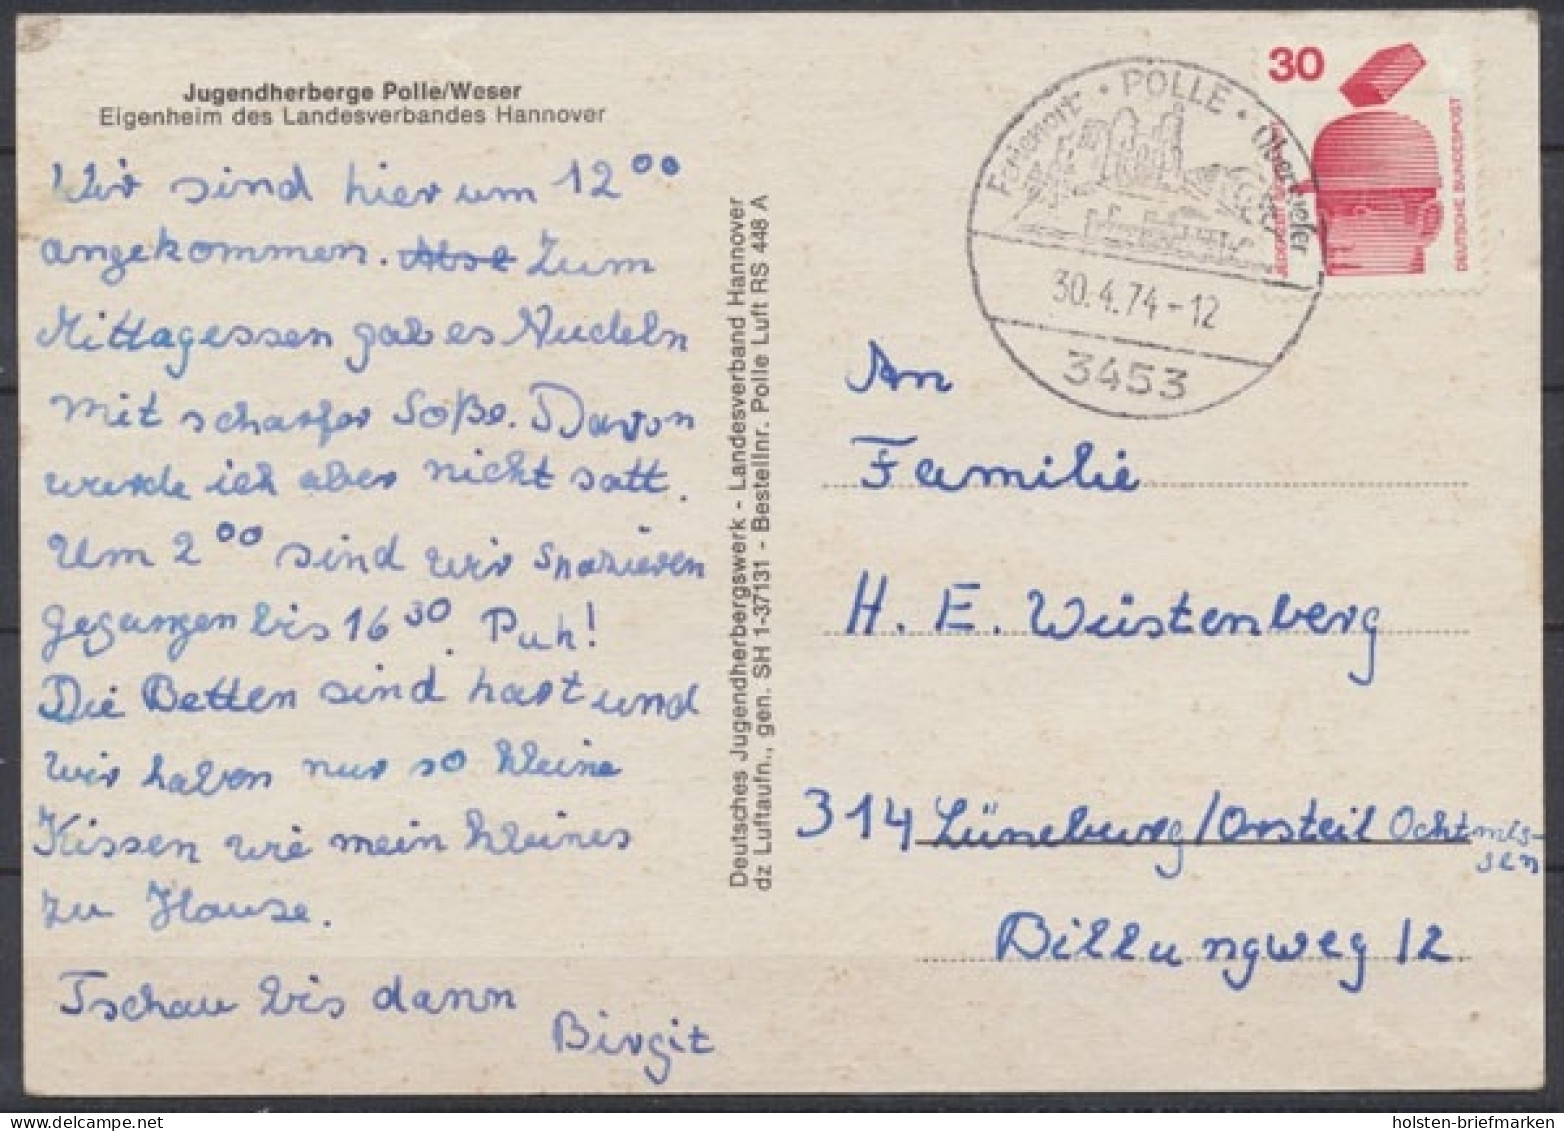 Jugendherberge Polle/Weser
Eigenheim des Landesverbandes Hannover
Wir sind hier um 12 00
angekommen. Zum
Mittagessen gab es Nudeln
mit scharfer Soße. Davon
wurde ich aber nicht satt.
Um 2 00 sind wir spazieren
gegangen bis 16 30. Puh!
Die Betten sind hart und
wir haben nur so kleine
Kissen wie mein kleines
zu Hause.
Tschau bis dann
Birgit
Deutsches Jugendherbergswerk - Landesverband Hannover
dz Luftaufn., gen. SH 1-37131 - Bestellnr. Polle Luft RS 448 A
Ferienort · POLLE · Oberweser
30.4.74-12
3453
30
DEUTSCHE BUNDESPOST
An
Familie
H. E. Wüstenberg
314 Lüneburg/Orsteil Ochtmis-
sen
Billungweg 12
holsten-briefmarken